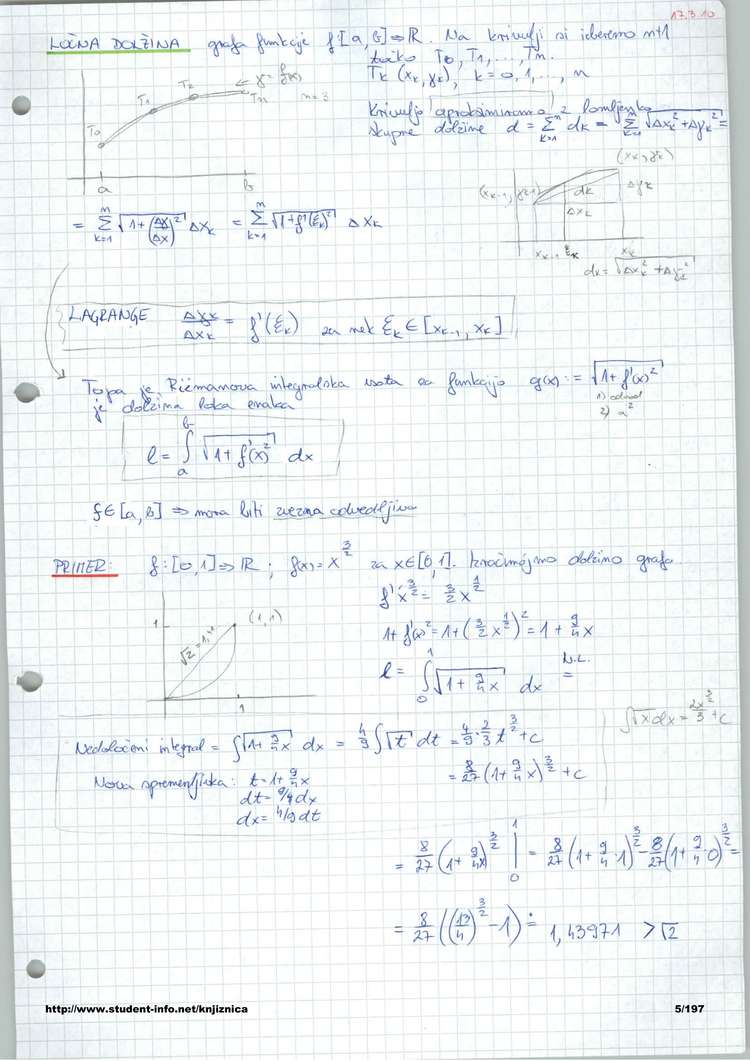 17.3.10
LOČNA DOLŽINA grafa funkcije f:[a,b]⇒ℝ. Na krivulji si izberemo n+1
točko T₀, T₁, ..., Tₙ.
Tₖ (xₖ, yₖ), k = 0, 1, ..., n
T₀ T₁ T₂ Tₙ ← y = f(x)
n=3
a b
Krivuljo aproksimiramo z lomljenko
skupne dolžine d = ∑ₖ₌₁ⁿ dₖ = ∑ₖ₌₁ⁿ √(Δxₖ² + Δyₖ²) =
(xₖ, yₖ)
(xₖ₋₁, yₖ₋₁) dₖ Δyₖ
Δxₖ
xₖ₋₁ ξₖ xₖ
dₖ = √(Δxₖ² + Δyₖ²)
= ∑ₖ₌₁ⁿ √(1+(Δy/Δx)²) Δxₖ = ∑ₖ₌₁ⁿ √(1+f'(ξₖ)²) Δxₖ
LAGRANGE Δyₖ/Δxₖ = f'(ξₖ) za nek ξₖ ∈ [xₖ₋₁, xₖ]
To pa je Riemanova integralska vsota za funkcijo g(x) := √(1+f'(x)²)
1) odvod
2) a²
je dolžina loka enaka
l = ∫ₐᵇ √(1+f'(x)²) dx
f∈[a,b] ⇒ mora biti zvezna odvedljiva
PRIMER: f:[0,1]⇒ℝ; f(x) = x^(3/2) za x∈[0,1]. Izračunajmo dolžino grafa.
f'x^(3/2) = 3/2 x^(1/2)
1+f'(x)² = 1+(3/2 x^(1/2))² = 1+9/4 x
l = ∫₀¹ √(1+9/4 x) dx N.L. =
1 (1,1)
√2 = 1,41
1
∫√x dx = 2x^(3/2)/3 + C
Nedoločeni integral = ∫√(1+9/4 x) dx = 4/9 ∫√t dt = 4/9 · 2/3 t^(3/2) + C
= 8/27 (1+9/4 x)^(3/2) + C
Nova spremenljivka: t = 1+9/4 x
dt = 9/4 dx
dx = 4/9 dt
= 8/27 (1+9/4 x)^(3/2) |₀¹ = 8/27 (1+9/4 · 1)^(3/2) - 8/27 (1+9/4 · 0)^(3/2) =
= 8/27 ((13/4)^(3/2) - 1) ≐ 1,43971 > √2
http://www.student-info.net/knjiznica 5/197